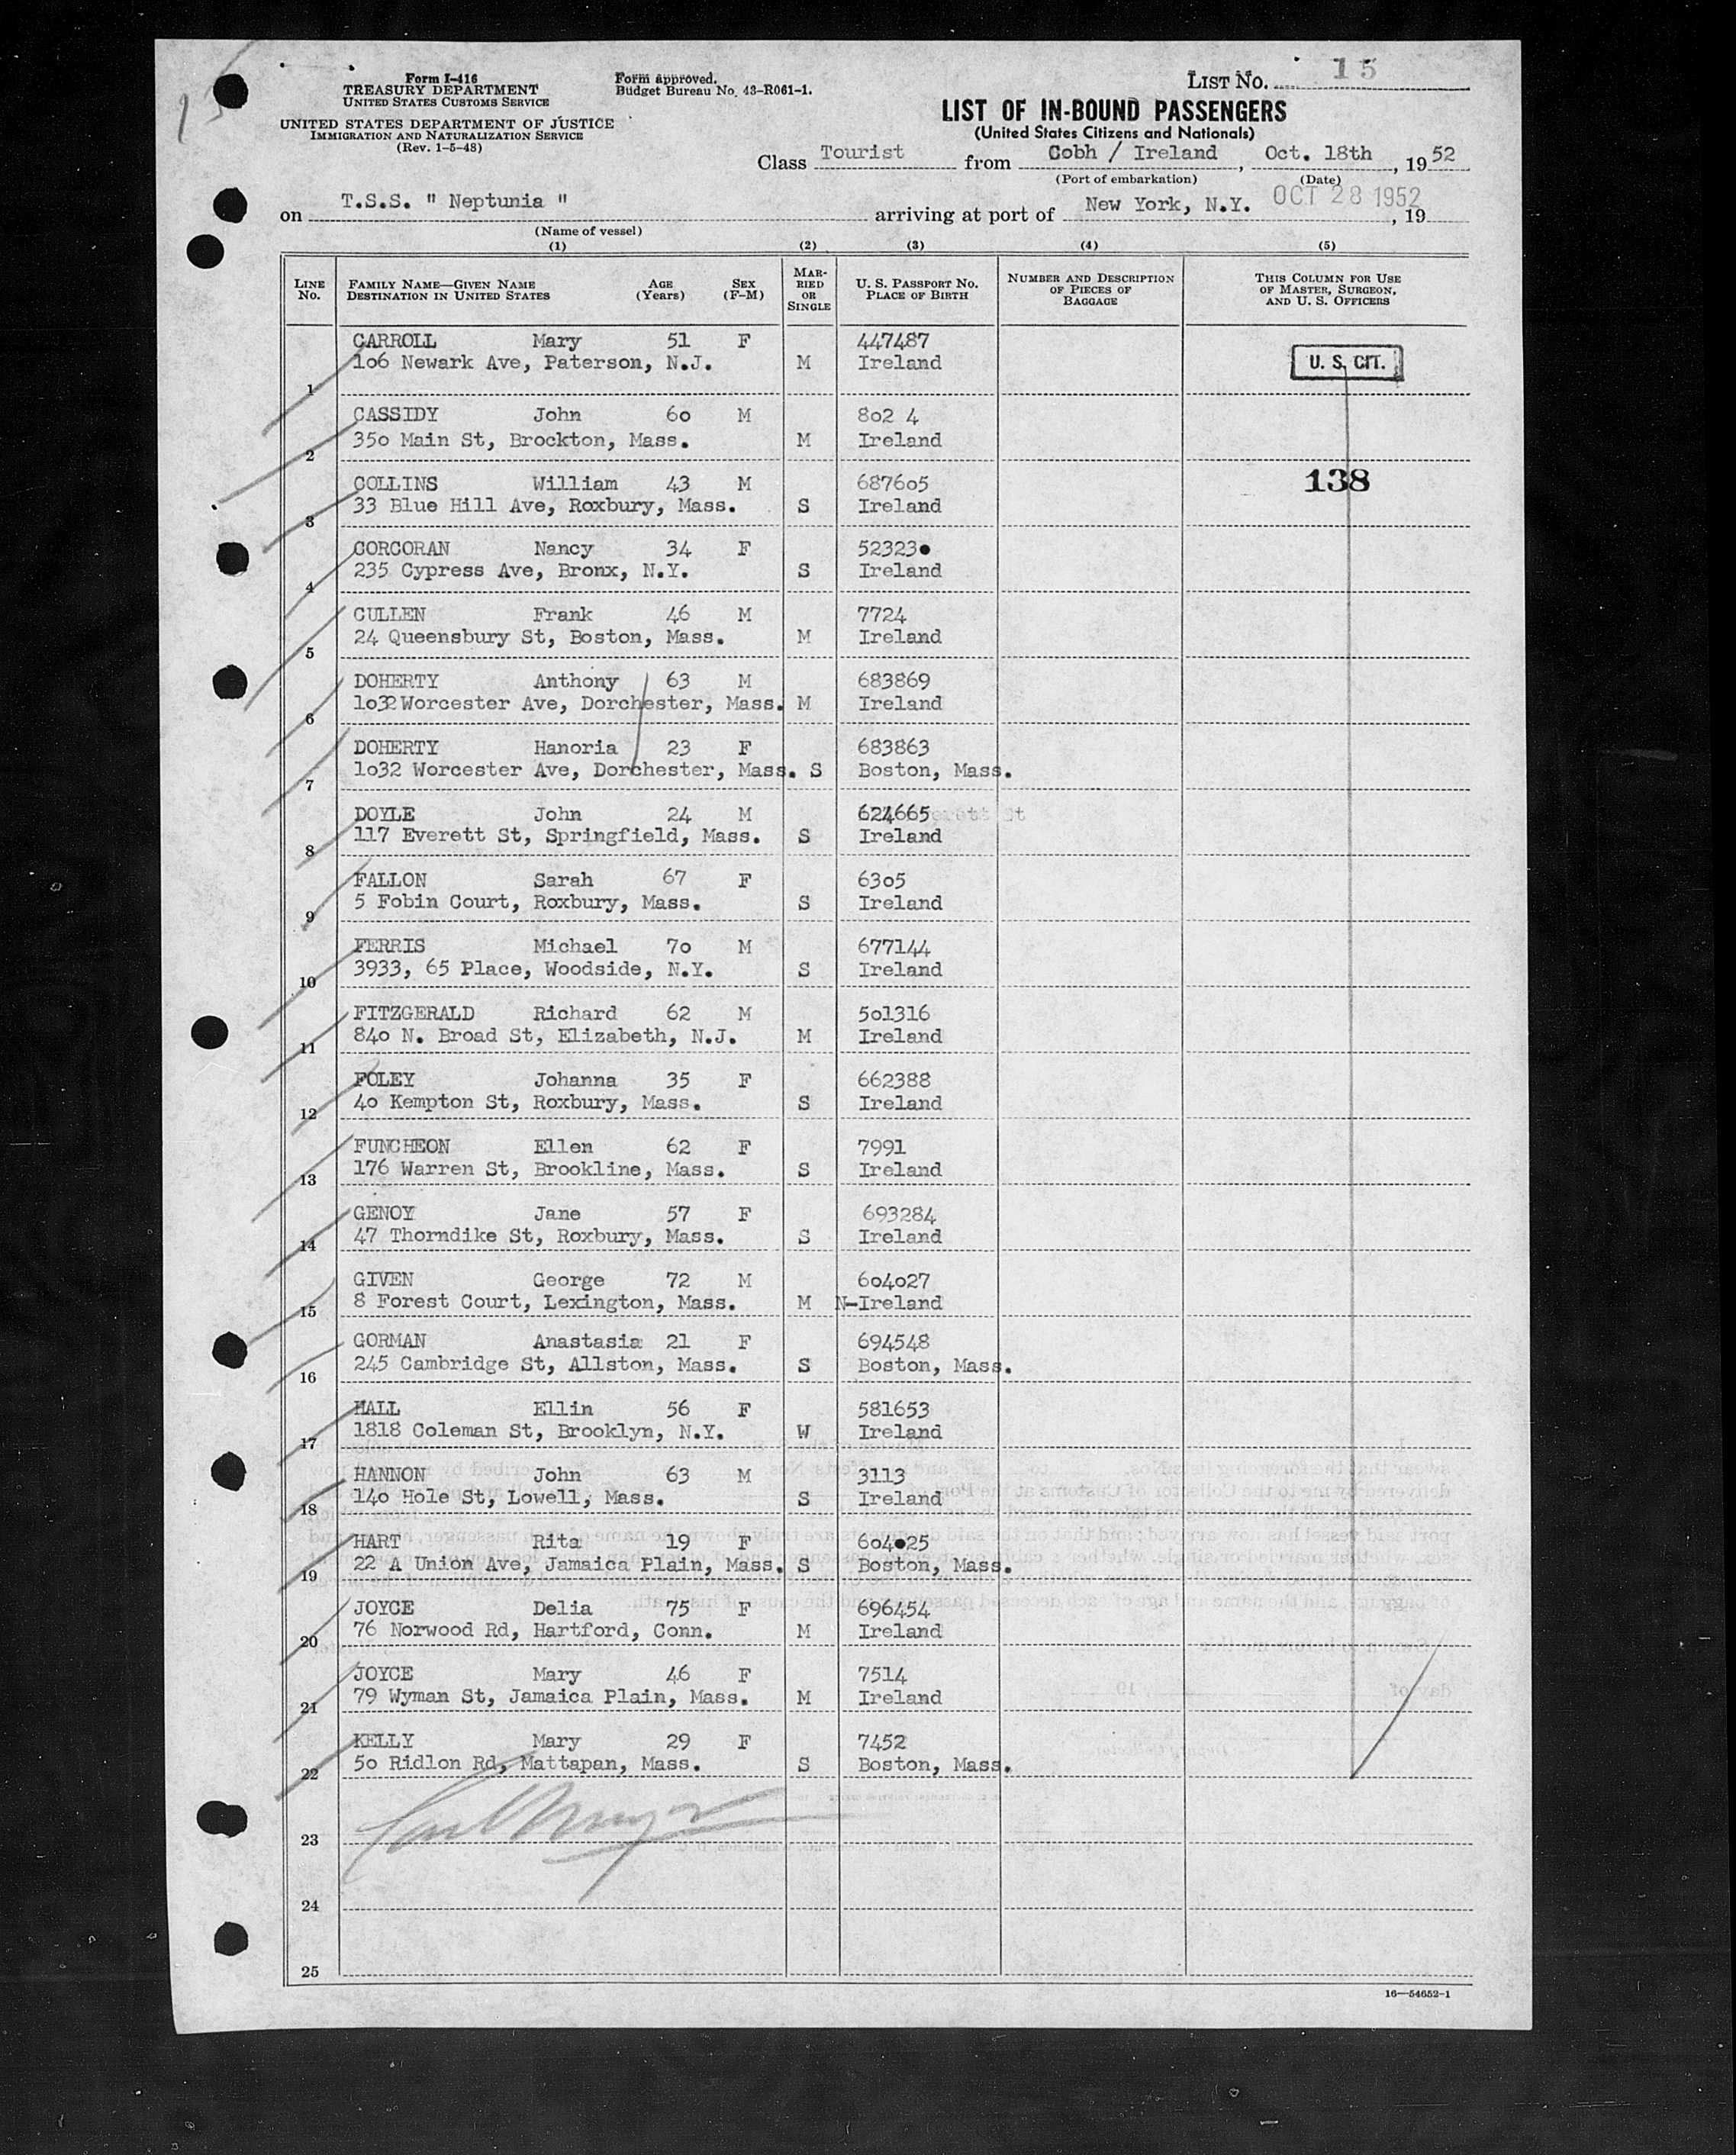 15
Form I-416
TREASURY DEPARTMENT
UNITED STATES CUSTOMS SERVICE
UNITED STATES DEPARTMENT OF JUSTICE
IMMIGRATION AND NATURALIZATION SERVICE
(Rev. 1-5-48)
Form approved.
Budget Bureau No. 43-R061-1.
LIST NO. 15
LIST OF IN-BOUND PASSENGERS
(United States Citizens and Nationals)
Class Tourist from Cobh / Ireland, Oct. 18th, 1952
(Port of embarkation) (Date)
on T.S.S. " Neptunia " arriving at port of New York, N.Y. OCT 28 1952, 19
(Name of vessel)
(1) (2) (3) (4) (5)
LINE No. FAMILY NAME—GIVEN NAME DESTINATION IN UNITED STATES AGE (Years) SEX (F-M) MARRIED OR SINGLE U. S. PASSPORT NO. PLACE OF BIRTH NUMBER AND DESCRIPTION OF PIECES OF BAGGAGE THIS COLUMN FOR USE OF MASTER, SURGEON, AND U. S. OFFICERS
CARROLL Mary 51 F 447487
1 106 Newark Ave, Paterson, N.J. M Ireland U. S. CIT.
CASSIDY John 60 M 802 4
2 350 Main St, Brockton, Mass. M Ireland
COLLINS William 43 M 687605 138
3 33 Blue Hill Ave, Roxbury, Mass. S Ireland
CORCORAN Nancy 34 F 52323●
4 235 Cypress Ave, Bronx, N.Y. S Ireland
CULLEN Frank 46 M 7724
5 24 Queensbury St, Boston, Mass. M Ireland
DOHERTY Anthony 63 M 683869
6 1032 Worcester Ave, Dorchester, Mass. M Ireland
DOHERTY Hanoria 23 F 683863
7 1032 Worcester Ave, Dorchester, Mass. S Boston, Mass.
DOYLE John 24 M 624665
8 117 Everett St, Springfield, Mass. S Ireland
FALLON Sarah 67 F 6305
9 5 Fobin Court, Roxbury, Mass. S Ireland
FERRIS Michael 70 M 677144
10 3933, 65 Place, Woodside, N.Y. S Ireland
FITZGERALD Richard 62 M 501316
11 840 N. Broad St, Elizabeth, N.J. M Ireland
FOLEY Johanna 35 F 662388
12 40 Kempton St, Roxbury, Mass. S Ireland
FUNCHEON Ellen 62 F 7991
13 176 Warren St, Brookline, Mass. S Ireland
GENOY Jane 57 F 693284
14 47 Thorndike St, Roxbury, Mass. S Ireland
GIVEN George 72 M 604027
15 8 Forest Court, Lexington, Mass. M N-Ireland
GORMAN Anastasia 21 F 694548
16 245 Cambridge St, Allston, Mass. S Boston, Mass.
HALL Ellin 56 F 581653
17 1818 Coleman St, Brooklyn, N.Y. W Ireland
HANNON John 63 M 3113
18 140 Hole St, Lowell, Mass. S Ireland
HART Rita 19 F 604●25
19 22 A Union Ave, Jamaica Plain, Mass. S Boston, Mass.
JOYCE Delia 75 F 696454
20 76 Norwood Rd, Hartford, Conn. M Ireland
JOYCE Mary 46 F 7514
21 79 Wyman St, Jamaica Plain, Mass. M Ireland
KELLY Mary 29 F 7452
22 50 Ridlon Rd, Mattapan, Mass. S Boston, Mass.
23
24
25
16—54652-1